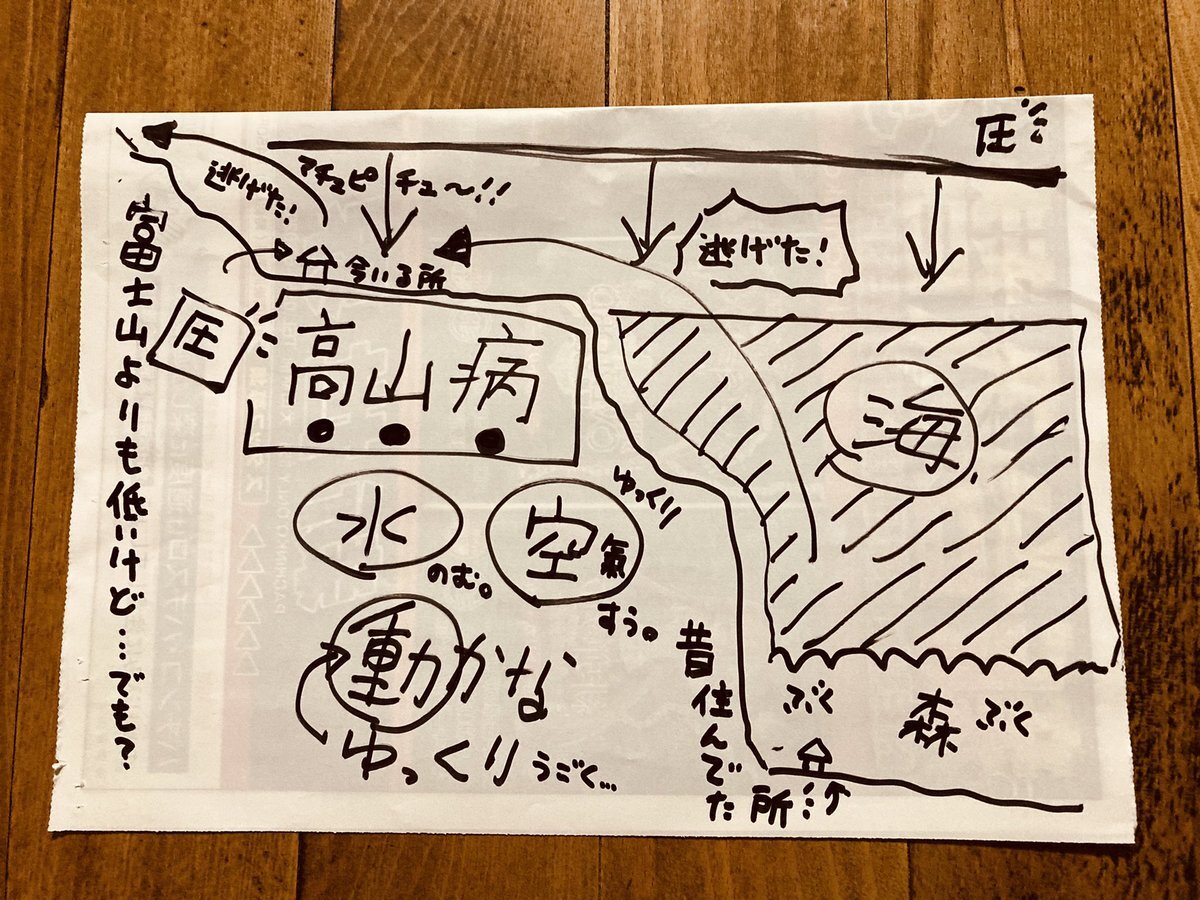 圧
逃げた!
マチュピチュ〜!!
今いる所
逃げた!
富士山よりも低いけど…でも?
圧
高山病
海
水
のむ。
空氣
ゆっくり
すう。
動かな
ゆっくりうごく…
昔住んでた所
ぶく
森
ぶく